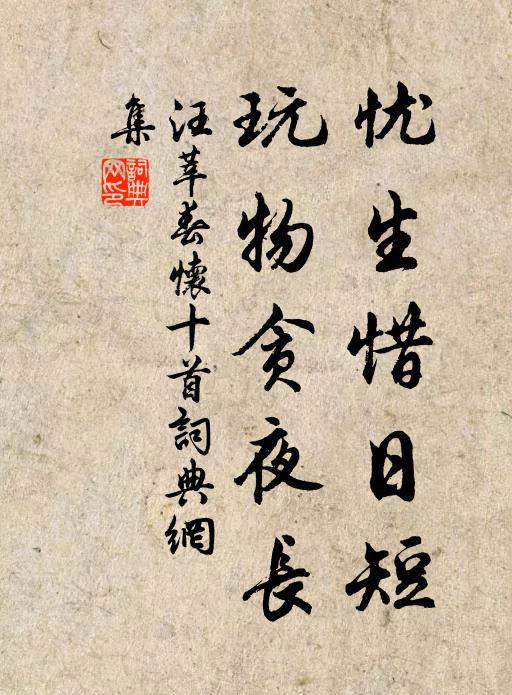 忧生惜日短
玩物贪夜長
汪莘春懷十首詞典網
集
詞典
网印